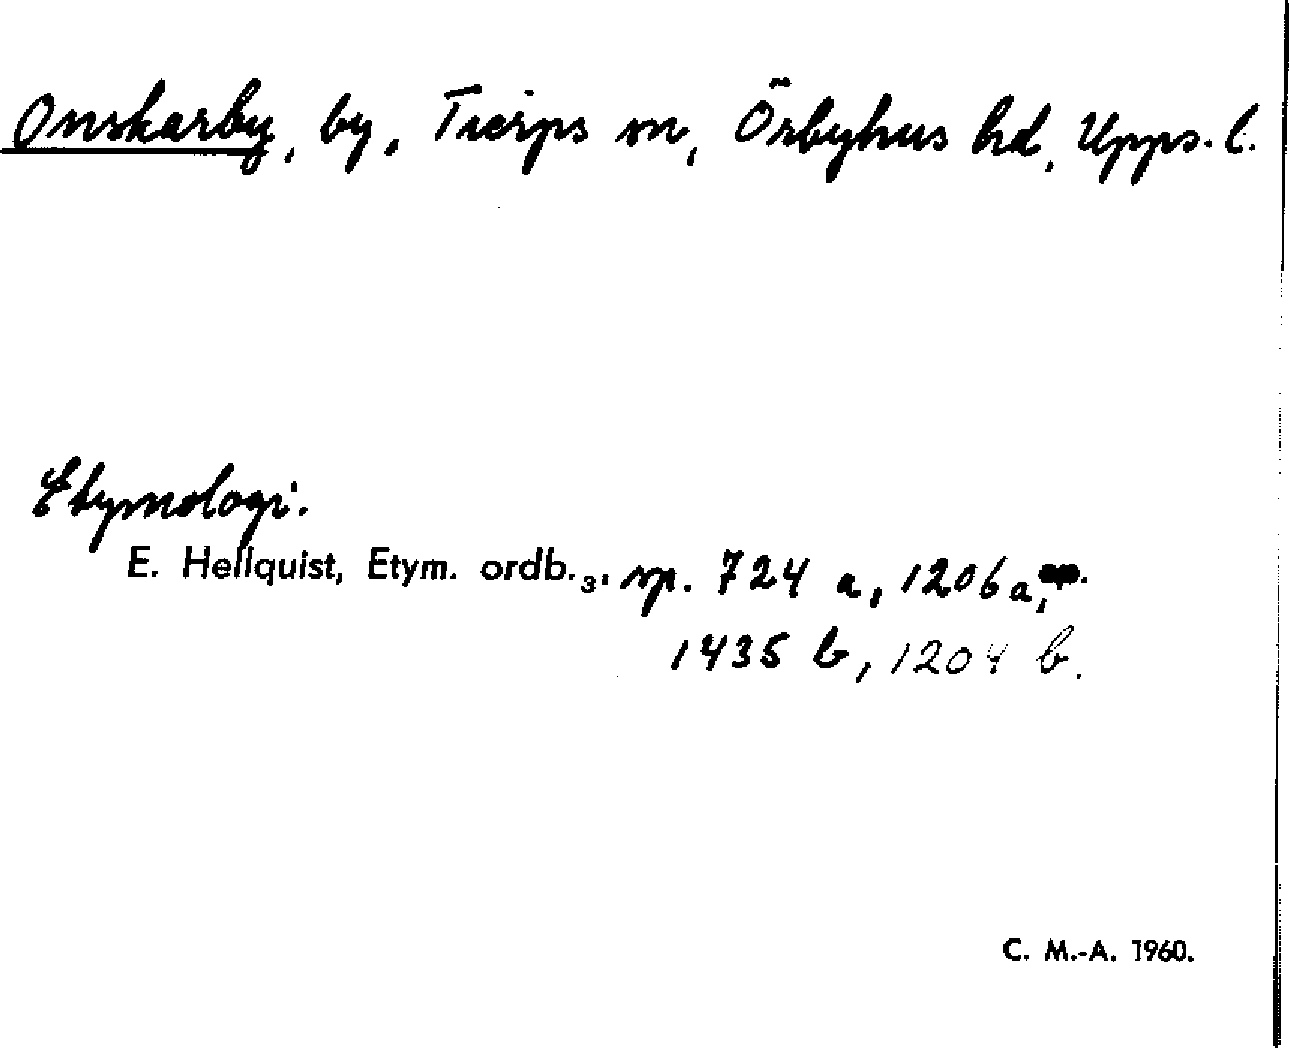 Onskarby, by, Tierps sn, Örbyhus hd, Upps. l.
Etymologi.
E. Hellquist, Etym. ordb.₃, sp. 724 a, 1206 a,
1435 b, 1204 b.
C. M.-A. 1960.